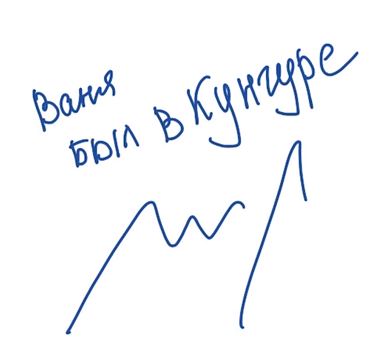 Ваня
был в Кунгуре